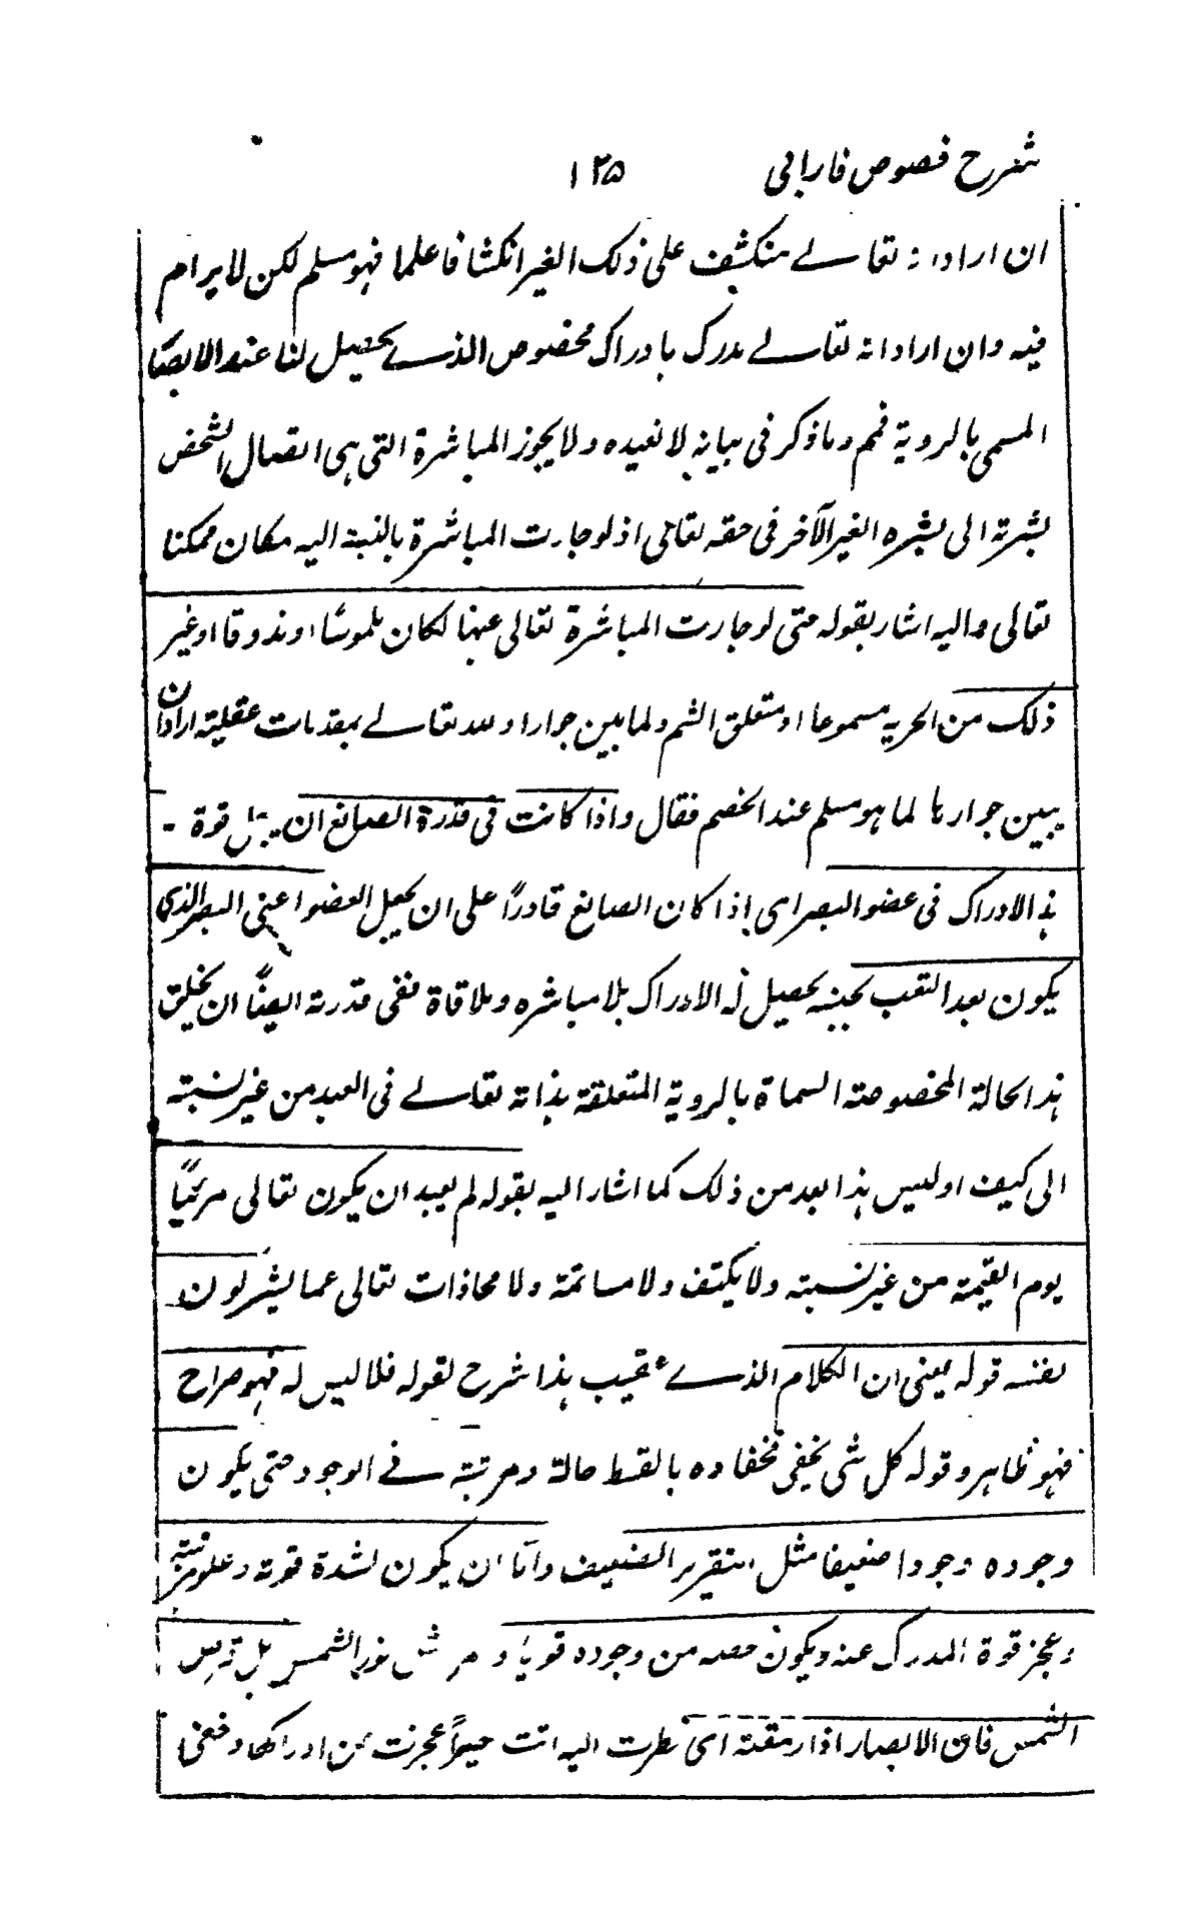 شرح فصوص فارابی ۱۲۵
ان اراد انہ تعالے منکشف علی ذلک الغیر انکشافا علما فہو مسلم لکن لا یرام
فیہ وان اراد انہ تعالے مدرک بادراک مخصوص الذے یحصل لنا عند الابصا
المسمی بالرویۃ فمم وما ذکر فی بیانہ لا نعیدہ ولا یجوز المباشرۃ التی ہی اتصال الشخص
بشرتہ الی بشرہ الغیر الآخر فی حقہ تعالی اذ لو جازت المباشرۃ بالنسبۃ الیہ مکان ممکنا
تعالی والیہ اشار بقولہ حتی لو جازت المباشرۃ تعالی عنہا لکان ملموسًا او مذوقا او غیر
ذلک من مسموعا او متعلق الشم ولما بین جواز تعالے بمقدمات عقلیۃ اراد ان
یبین جوازہا لما ہو مسلم عند الخصم فقال واذا کانت فی قدرۃ الصانع ان قوۃ -
ہذا الادراک فی عضو البصر ای اذا کان الصانع قادرًا علی ان یجعل العضو اعنی البصر الذی
یکون بعد التعب بحیث یحصل لہ الادراک بلا مباشرہ وملاقاۃ ففی قدرتہ ایضًا ان یخلق
ہذا الحالۃ المخصوصۃ السماۃ بالرویۃ المتعلقۃ بذاتہ تعالے فی العبد من غیر نسبتہ
الی کیف اولیس ہذا بعد من ذلک کما اشار الیہ بقولہ لم یبعد ان یکون تعالی مرئیًا
یوم القیمۃ من غیر نسبتہ ولا یکتف ولا مسامتۃ ولا محاذات تعالی عما یشرکون
نفسہ قولہ یعنی ان الکلام الذے عقیب ہذا شرح لقولہ فلا لبس لہ فہو صراح
فہو ظاہر وقولہ کل شی یخفی فخفاوہ بالقسط حالۃ ومرتبتہ فے الوجود حتی یکون
وجودہ وجودا ضعیفا مثل النقریر الضعیف واما ان یکون لشدۃ قوتہ وعلو مرتبتہ
وعجز قوۃ المدرک عنہ ویکون حصہ من وجودہ قویًا و نور الشمس بل قرص
الشمس فان الابصار اذا رمقتہ ای نظرت الیہ انت حیرًا عجزت عن ادراکہا وخفی